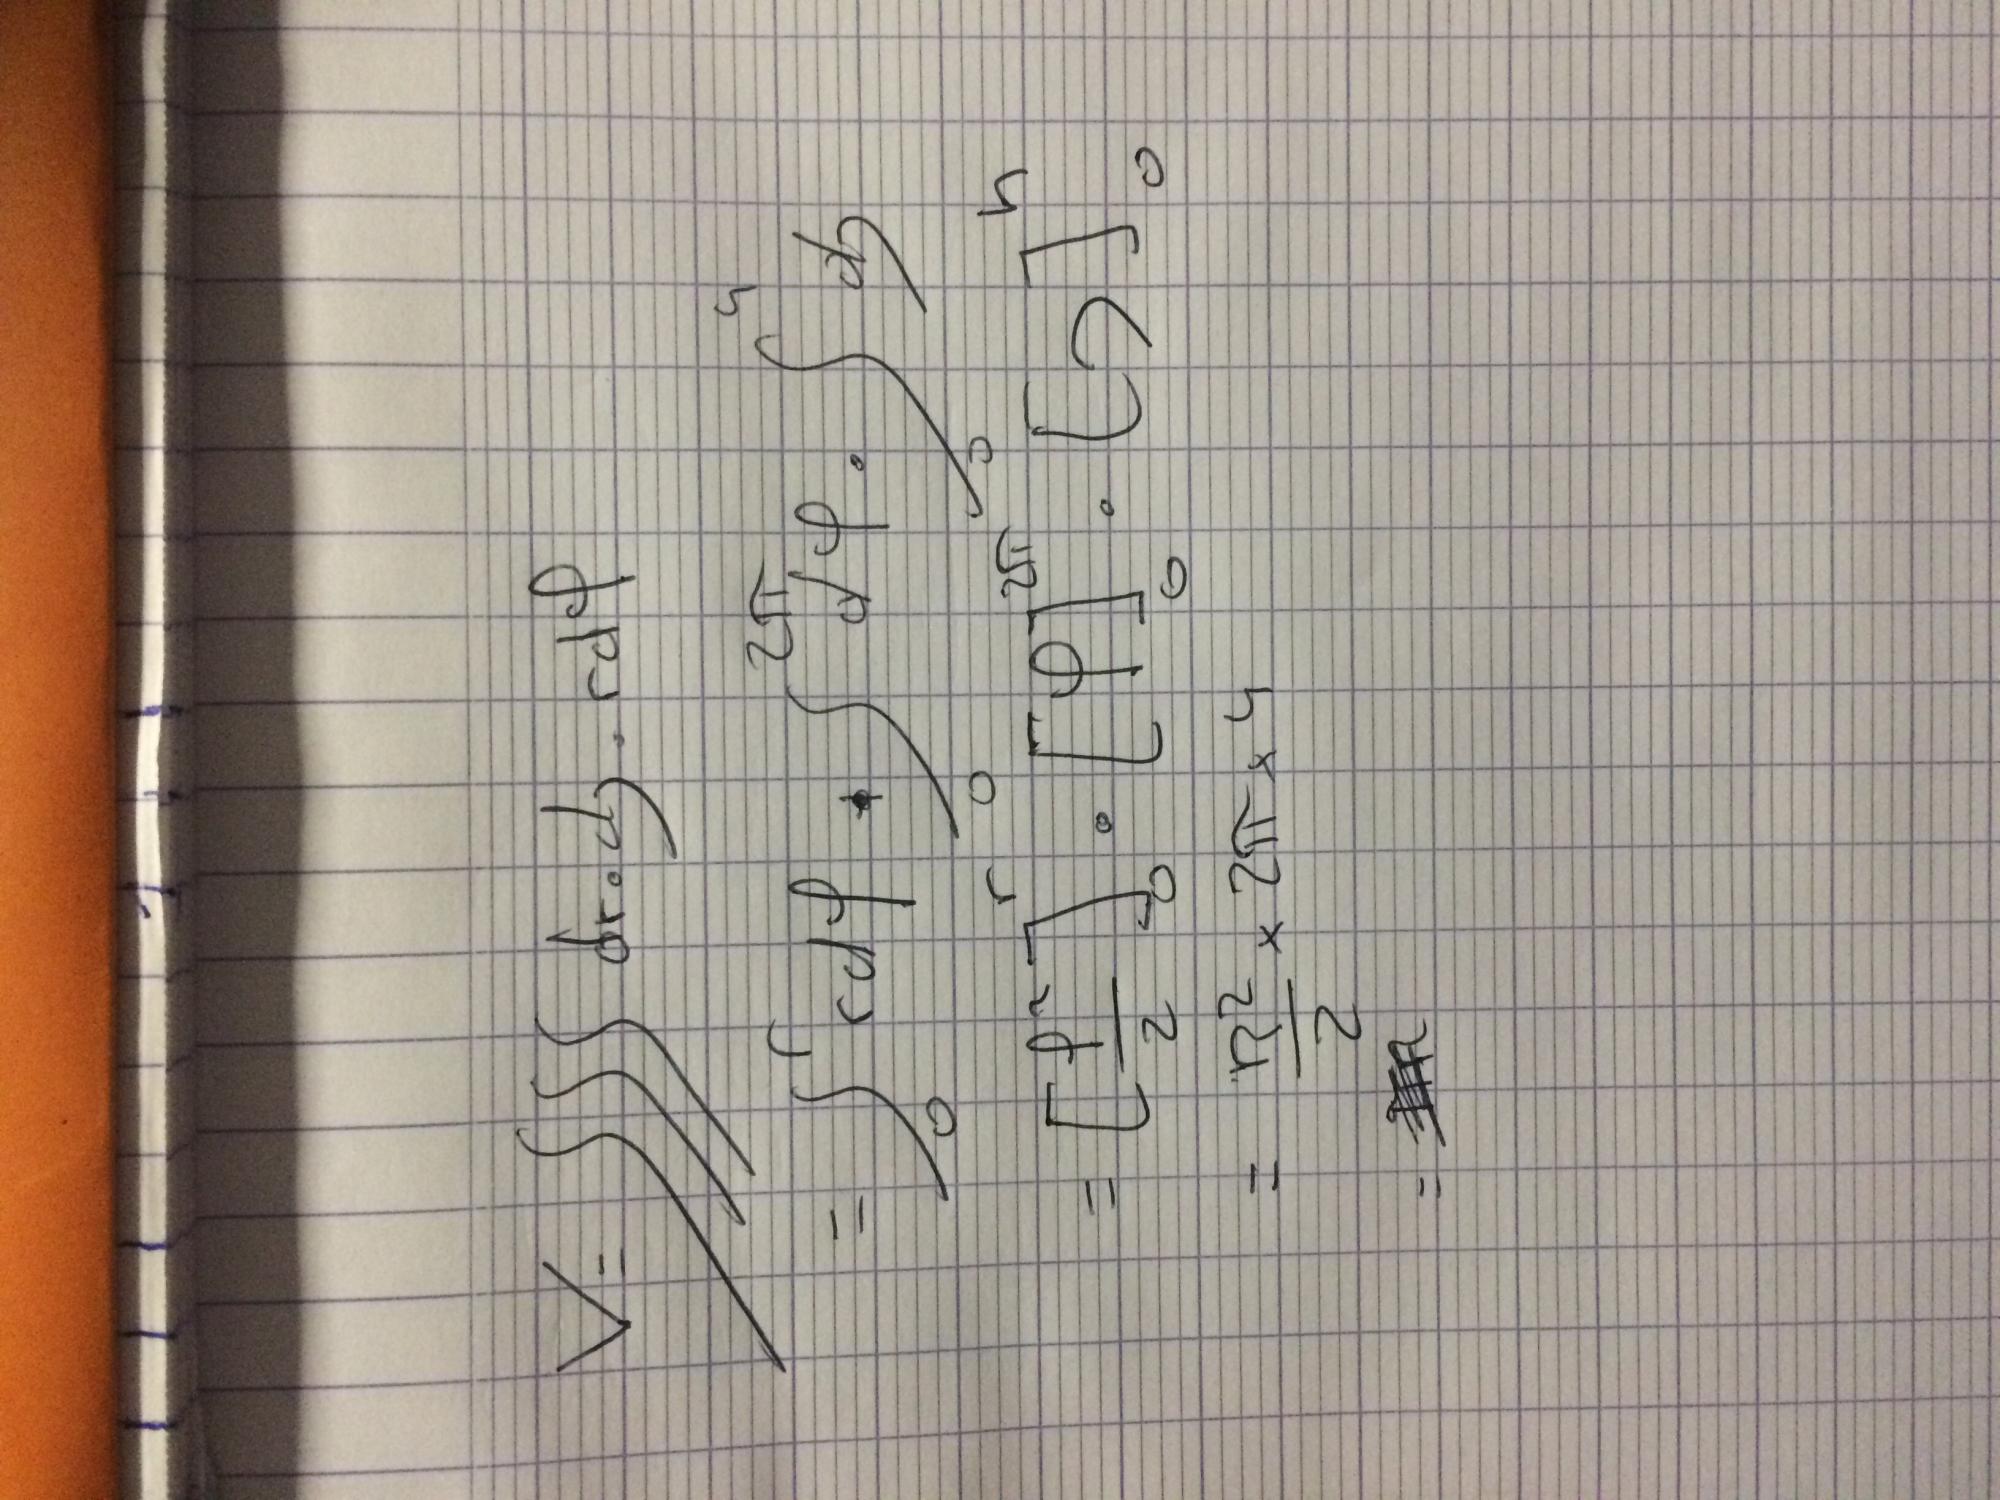 V = ∫∫∫ dr.dz.rdφ
= ∫₀ʳ rdφ . ∫₀^2π dφ . ∫₀ʰ dz
= [φ²/2]₀ʳ . [φ]₀^2π . [z]₀ʰ
= r²/2 × 2π × h
=